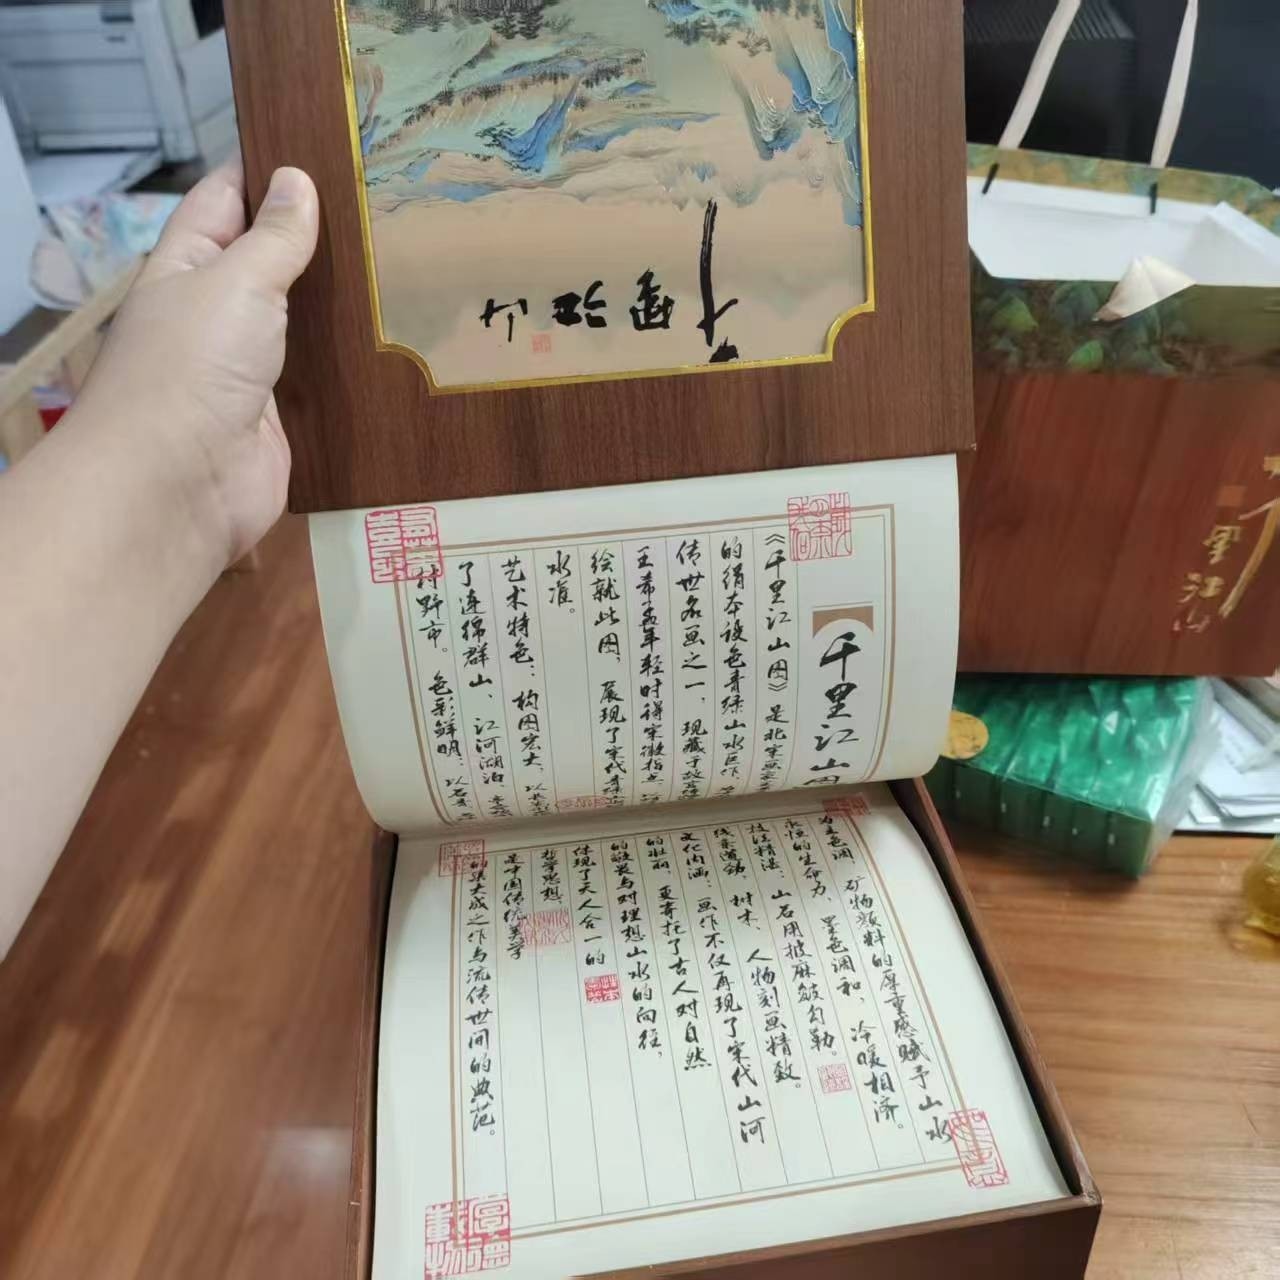 千里江山
千里江山图
《千里江山图》是北宋画家
的绢本设色青绿山水巨作,
传世名画之一,现藏于故宫
王希孟年轻时得宋徽指点,
绘就此图,展现了宋代青绿山
水准。
艺术特色:构图宏大,以长
了连绵群山、江河湖泊、
村野市。色彩鲜明:以石青
为主色调,矿物颜料的厚重感赋予山水
永恒的生命力,墨色调和,冷暖相济。
技法精湛:山石用披麻皴勾勒。
线条遒劲,树木、人物刻画精致。
文化内涵:画作不仅再现了宋代山河
的壮丽,更寄托了古人对自然
的敬畏与对理想山水的向往,
体现了天人合一的
哲学思想,
是中国传统美学
的集大成之作与流传世间的典范。
厚德载物
千里江山